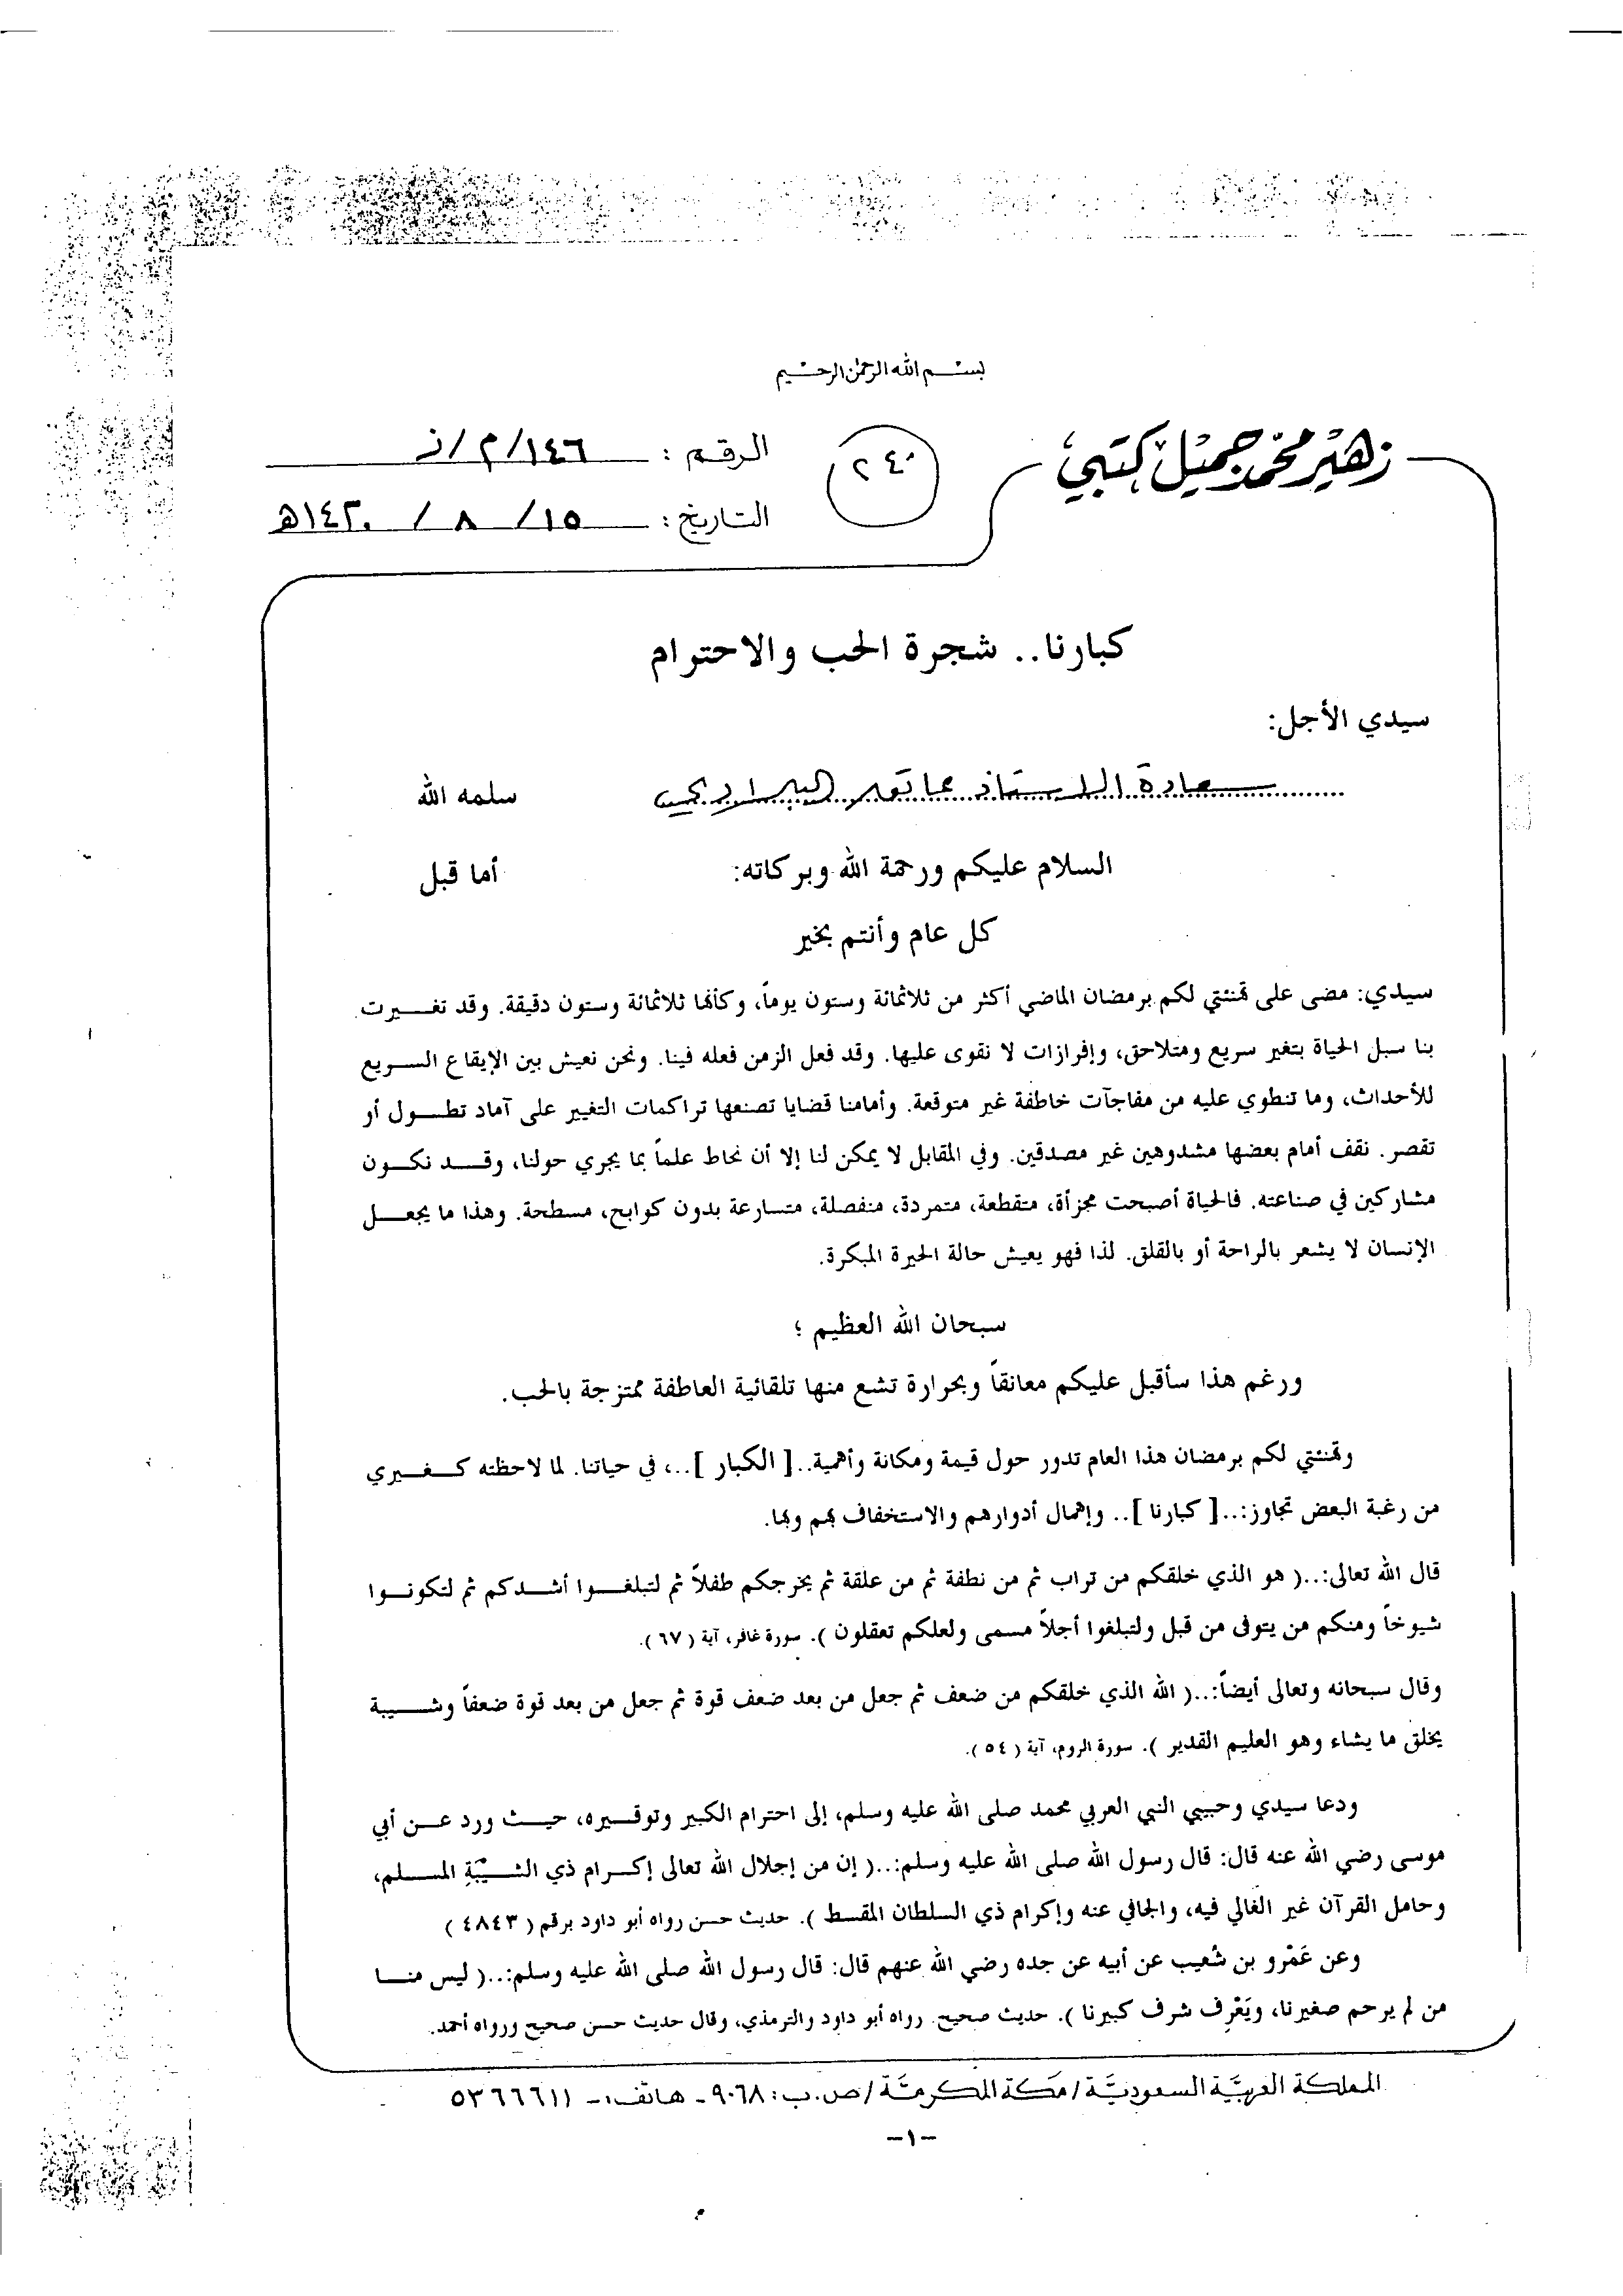 بسم الله الرحمن الرحيم
زهير محمد جميل كتبي
٢٤٠
الرقم : ١٤٦/م/ز
التاريخ : ١٥/ ٨ / ١٤٢٠هـ
كبارنا.. شجرة الحب والاحترام
سيدي الأجل:
سعادة الأستاذ عاتق البلادي سلمه الله
السلام عليكم ورحمة الله وبركاته: أما قبل
كل عام وأنتم بخير
سيدي: مضى على تهنئتي لكم برمضان الماضي أكثر من ثلاثمائة وستون يوماً، وكأنها ثلاثمائة وستون دقيقة. وقد تغيرت
بنا سبل الحياة بتغير سريع ومتلاحق، وإفرازات لا نقوى عليها. وقد فعل الزمن فعله فينا. ونحن نعيش بين الإيقاع السريع
للأحداث، وما تنطوي عليه من مفاجآت خاطفة غير متوقعة. وأمامنا قضايا تصنعها تراكمات التغيير على آماد تطول أو
تقصر. نقف أمام بعضها مشدوهين غير مصدقين. وفي المقابل لا يمكن لنا إلا أن نحاط علماً بما يجري حولنا، وقد نكون
مشاركين في صناعته. فالحياة أصبحت مجزأة، متقطعة، متمردة، منفصلة، متسارعة بدون كوابح، مسطحة. وهذا ما يجعل
الإنسان لا يشعر بالراحة أو بالقلق. لذا فهو يعيش حالة الحيرة المبكرة.
سبحان الله العظيم ؛
ورغم هذا سأقبل عليكم معانقاً وبحرارة تشع منها تلقائية العاطفة ممتزجة بالحب.
وتهنئتي لكم برمضان هذا العام تدور حول قيمة ومكانة وأهمية..[ الكبار ]..، في حياتنا. لما لاحظته كغيري
من رغبة البعض تجاوز:..[ كبارنا ].. وإهمال أدوارهم والاستخفاف بهم وبها.
قال الله تعالى:..( هو الذي خلقكم من تراب ثم من نطفة ثم من علقة ثم يخرجكم طفلاً ثم لتبلغوا أشدكم ثم لتكونوا
شيوخاً ومنكم من يتوفى من قبل ولتبلغوا أجلاً مسمى ولعلكم تعقلون ). سورة غافر، آية ( ٦٧ ).
وقال سبحانه وتعالى أيضاً:..( الله الذي خلقكم من ضعف ثم جعل من بعد ضعف قوة ثم جعل من بعد قوة ضعفاً وشيبة
يخلق ما يشاء وهو العليم القدير ). سورة الروم، آية ( ٥٤ ).
ودعا سيدي وحبيبي النبي العربي محمد صلى الله عليه وسلم، إلى احترام الكبير وتوقيره، حيث ورد عن أبي
موسى رضي الله عنه قال: قال رسول الله صلى الله عليه وسلم:..( إن من إجلال الله تعالى إكرام ذي الشَّيْبَةِ المسلم،
وحامل القرآن غير الغالي فيه، والجافي عنه وإكرام ذي السلطان المقسط ). حديث حسن رواه أبو داود برقم ( ٤٨٤٣ )
وعن عَمْرو بن شُعيب عن أبيه عن جده رضي الله عنهم قال: قال رسول الله صلى الله عليه وسلم:..( ليس منا
من لم يرحم صغيرنا، ويَعْرِف شرف كبيرنا ). حديث صحيح. رواه أبو داود والترمذي، وقال حديث حسن صحيح ورواه أحمد.
المملكة العربيَّة السعوديَّة / مَكة المكرمَّة / ص.ب: ٩٠٦٨ - هاتف:- ٥٣٦٦٦١١
-١-